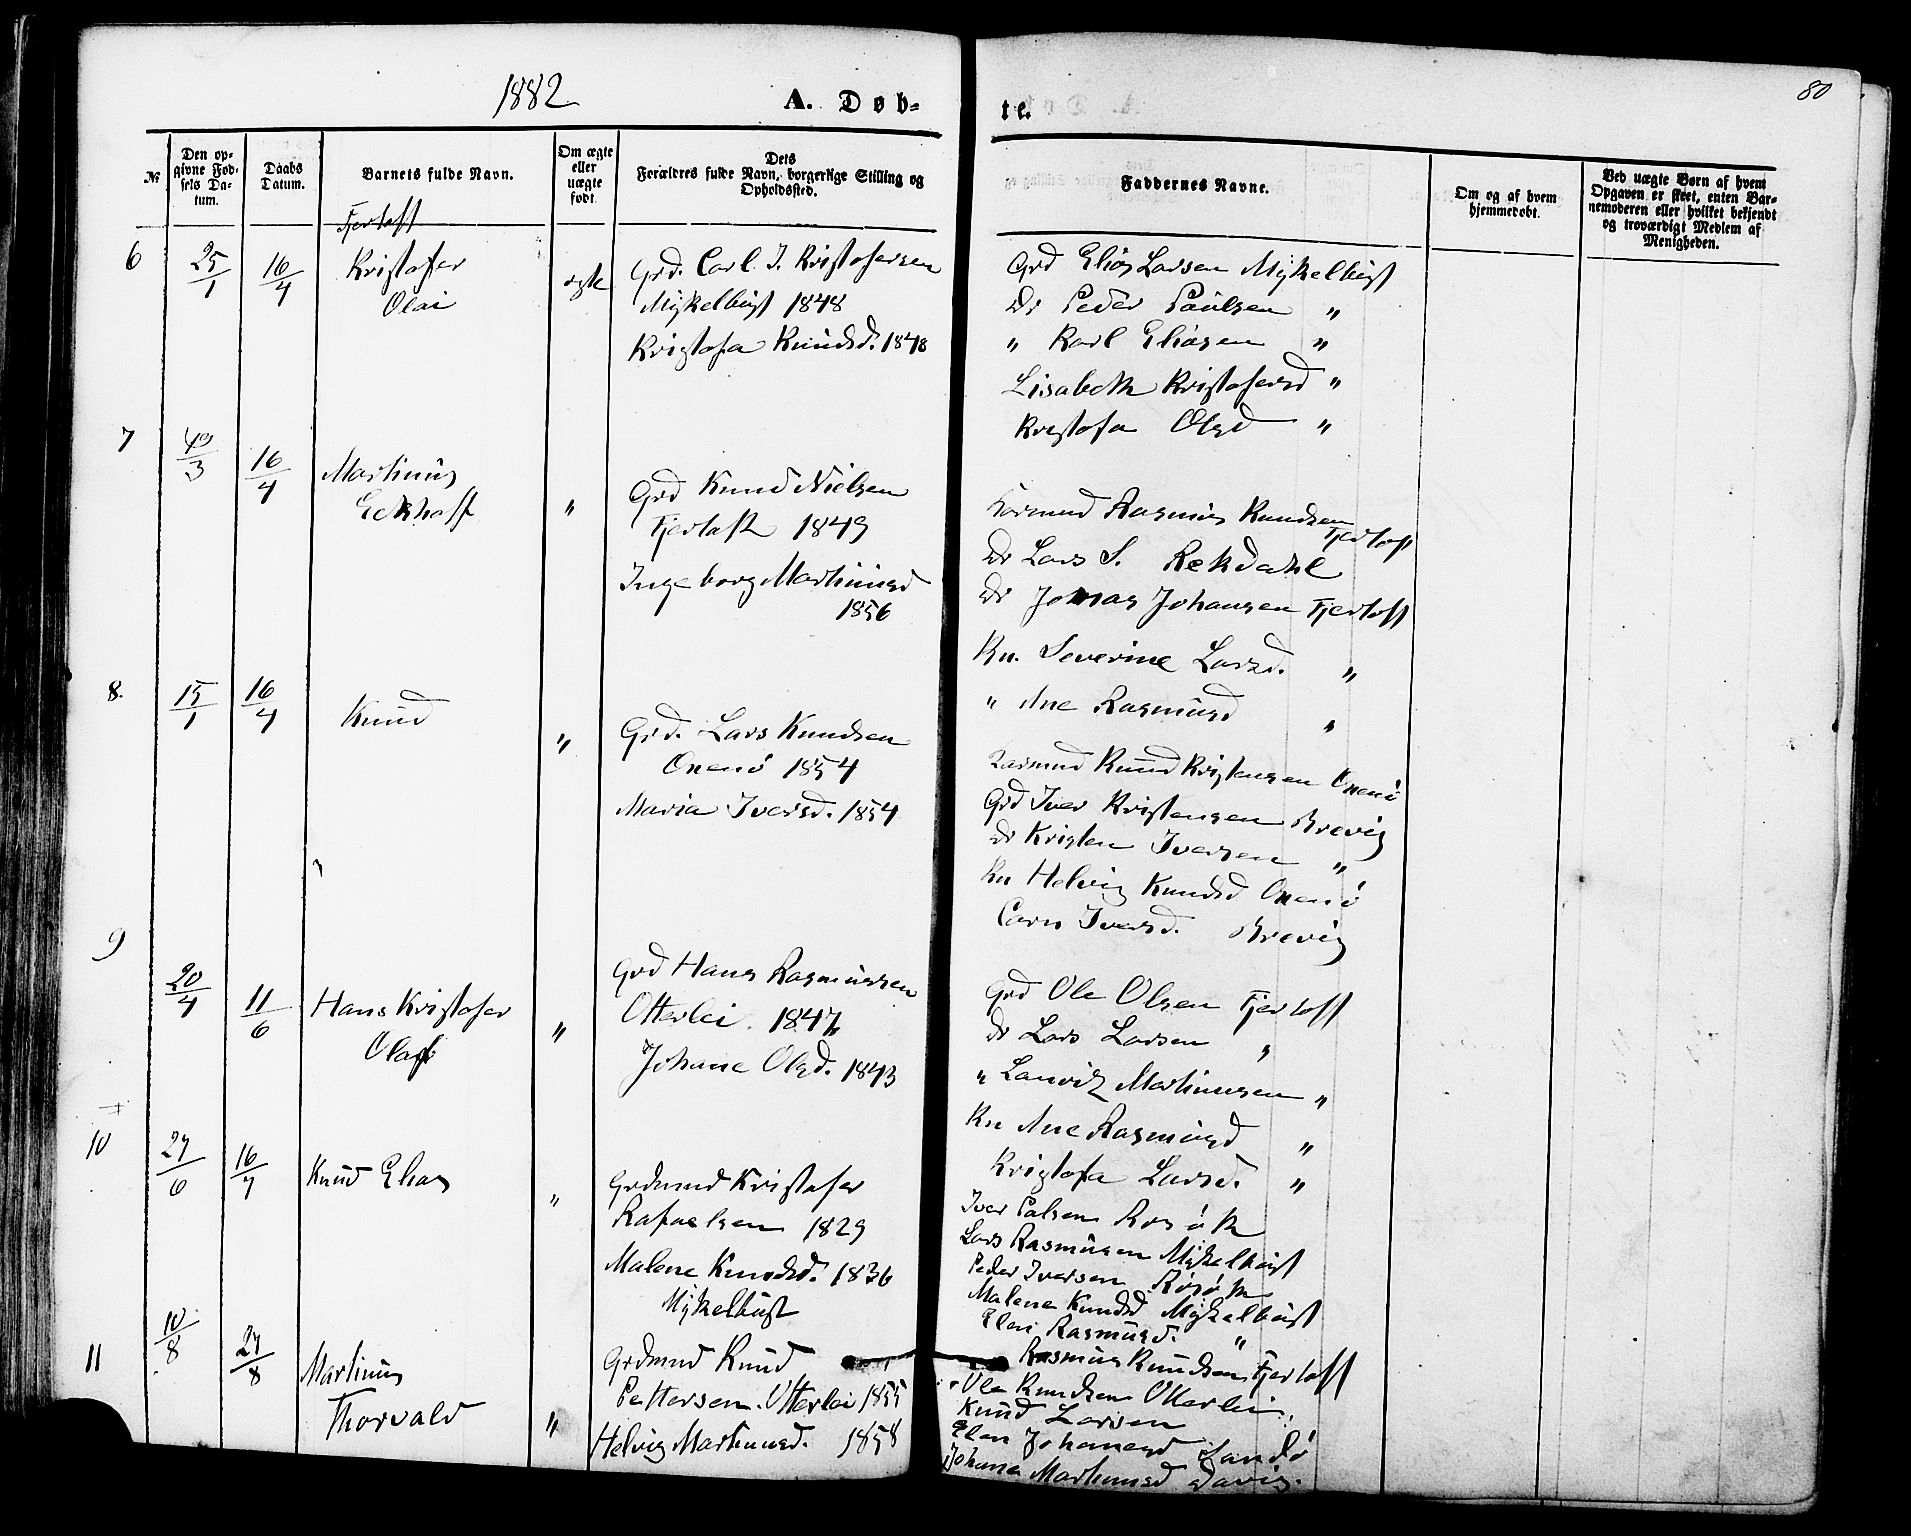 1882
A. Døb-
te.
80
№
Den op-
givne Fød-
sels Da-
tum.
Daabs
Datum.
Barnets fulde Navn.
Om ægte
eller
uægte
født.
Dets
Forældres fulde Navn, borgerlige Stilling og
Opholdssted.
Faddernes Navne.
Om og af hvem
hjemmedøbt.
Ved uægte Børn af hvem
Opgaven er skeet, enten Bar-
nemoderen eller hvilket bekjendt
og troværdigt Medlem af
Menigheden.
Fjertoft
6
25/1
16/4
Kristofer
Olai
ægte
Grd. Carl J. Kristofersen
Mykelbust 1848
Kristofa Knudsd. 1848
Grd Elias Larsen Mykelbust
Do Peder Paulsen "
" Karl Eliasen "
Lisabeth Kristofersd "
Kristofa Olsd "
7
16/4
Martinus
Eckhoff
"
Grd Knud Nielsen
Fjertoft 1849
Ingeborg Martinusd
1856
Formand Rasmus Knudsen
Fjertoft
Do Lars S. Rekdahl
Do Jonas Johansen Fjertoft
Kn. Severine Larsd. "
" Ane Rasmusd "
8.
15/1
16/4
Knud
"
Grd. Lars Knudsen
Onenø 1854
Maria Iversd. 1854
Knud Kristensen Onenø
Grd Iver Kristensen Brevig
Do Kristen Iversen "
Kn Helvig Knudsd Onenø
Carn Iversd. Brevig
9
20/4
11/6
Hans Kristofer
Olaf
"
Grd Hans Rasmussen
Otterlei 1847
Johane Olsd. 1843
Grd Ole Olsen Fjertoft
Do Lars Larsen "
" Lauritz Martinusen "
Kn Ane Rasmusd "
Kristofa Larsd. "
10
27/6
16/7
Knud Elias
"
Grdmand Kristofer
Rafaelsen 1829
Malene Knudsd. 1836
Mykelbust
Iver Palsen Røsøk
Lars Rasmusen Mykelbust
Peder Iversen Røsøk
Malene Knudsd Mykelbust
Elen Rasmusd. "
11
10/8
27/8
Martinus
Thorvald
"
Grdmand Knud
Pettersen Otterlei 1855
Helvig Martinusd. 1858
Rasmus Knudsen Fjertoft
Ole Knudsen Otterlei
Knud Larsen
Elen Johanesd Sandø
Johana Martinusd Davig.